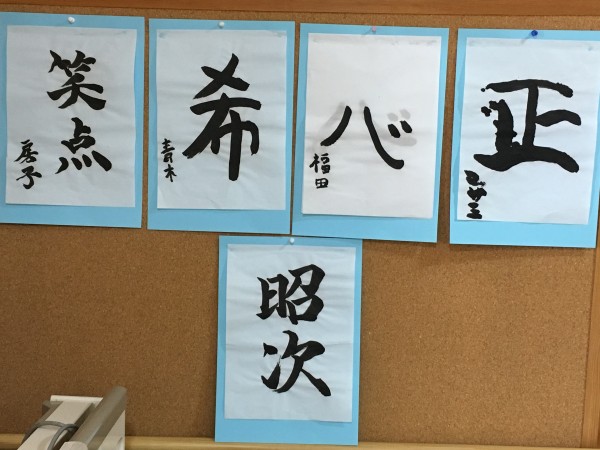 笑点
房子
希
青木
心
福田
正
マサミ
昭次